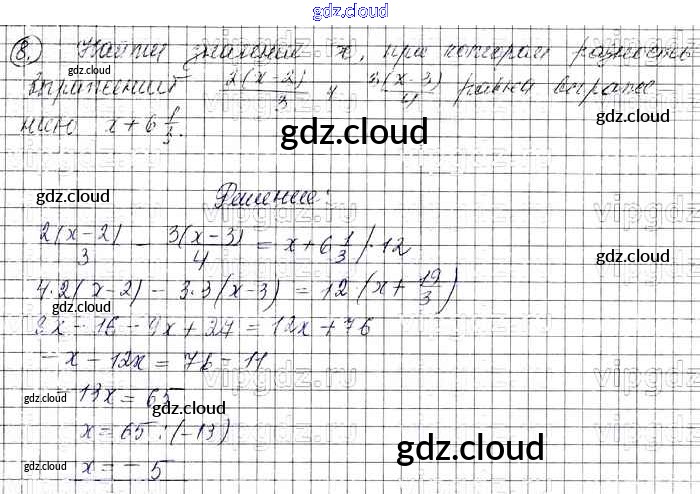 gdz.cloud
8. Найти значение x, при котором разность
gdz.cloud
выражений 2(x-2)/3 и 3(x-3)/4 равна выраже
нию x + 6 1/3.
gdz.cloud
gdz.cloud
Решение:
vipgdz.ru
2(x-2)/3 - 3(x-3)/4 = x + 6 1/3 | · 12
gdz.cloud
4·2(x-2) - 3·3(x-3) = 12(x + 19/3)
gdz.cloud
8x - 16 - 9x + 27 = 12x + 76
vipgdz.ru
- x - 12x = 76 - 11
gdz.cloud
- 13x = 65
gdz.cloud
x = 65 : (-13)
gdz.cloud
x = - 5
gdz.cloud